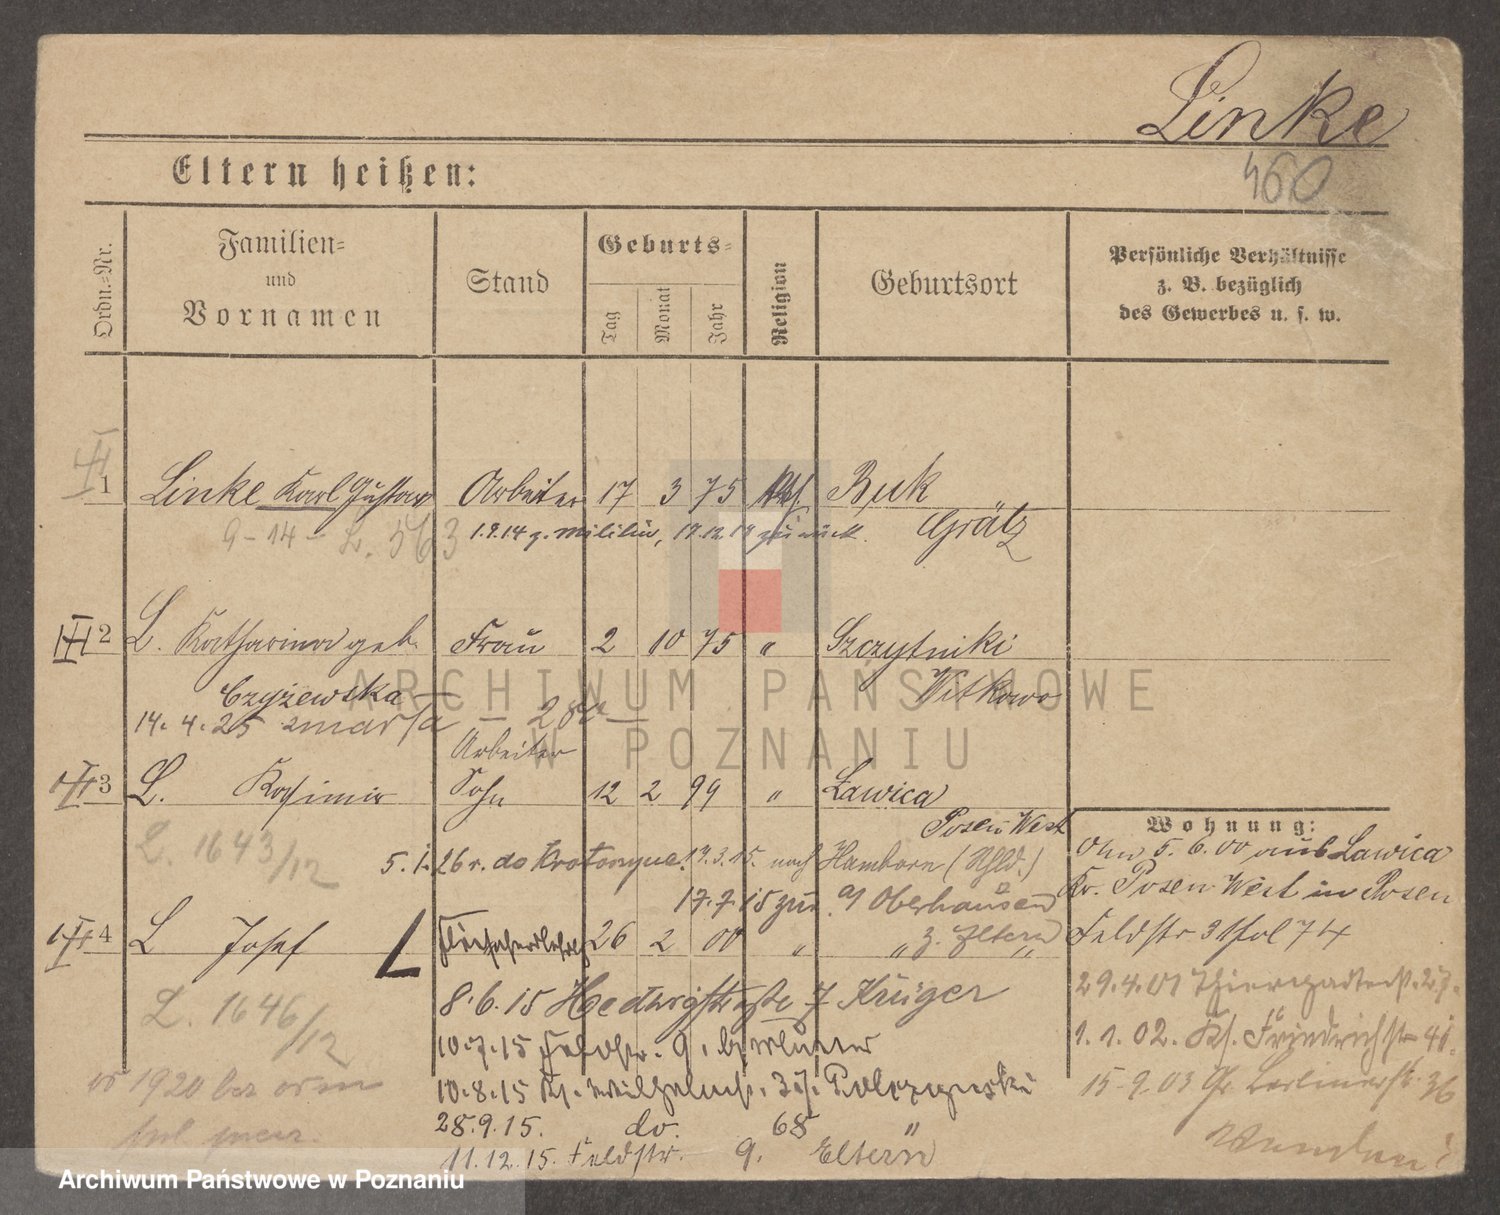 Linke
460
Eltern heißen:
Ordn.=Nr.
Familien=
und
Vornamen
Stand
Geburts=
Tag
Monat
Jahr
Religion
Geburtsort
Persönliche Verhältnisse
z. B. bezüglich
des Gewerbes u. s. w.
1 Linke Karl Gustav Arbeiter 17 3 75 Buk
Grätz
9-14- L. 563
1.9.14 z. Militär, 19.12.14 zurück.
2 L. Katharina geb. Frau 2 10 75 " Szczytniki
Czyżewska
Witkowo
14.4.25 zmarła
Arbeiter
3 L. Kasimir Sohn 12 2 99 " Ławica
Posen West
L. 1643/12
5.1.26 r. do Krotoszyna. 13.3.15. nach Hamborn (Rhld.)
17.7.15 zur. Oberhausen
z. Eltern
4 L Josef L Fleischerlehrl. 26 2 00 " " "
L. 1646/12
8.6.15 Hedwigstraße 7 Krüger
10.7.15 Feldstr. 9.
10.8.15 Kl. Wilhelmst.
28.9.15. do. 68 "
11.12.15. Feldstr. 9. Eltern
1920
Wohnung:
5.6.00 aus Lawica
Kr. Posen West in Posen
Feldstr 3
29.4.01 Thiergartenst. 27.
1.1.02. Kl. Friedrichstr
15.9.03 Gr Berlinerstr. 36
ARCHIWUM PAŃSTWOWE
W POZNANIU
Archiwum Państwowe w Poznaniu